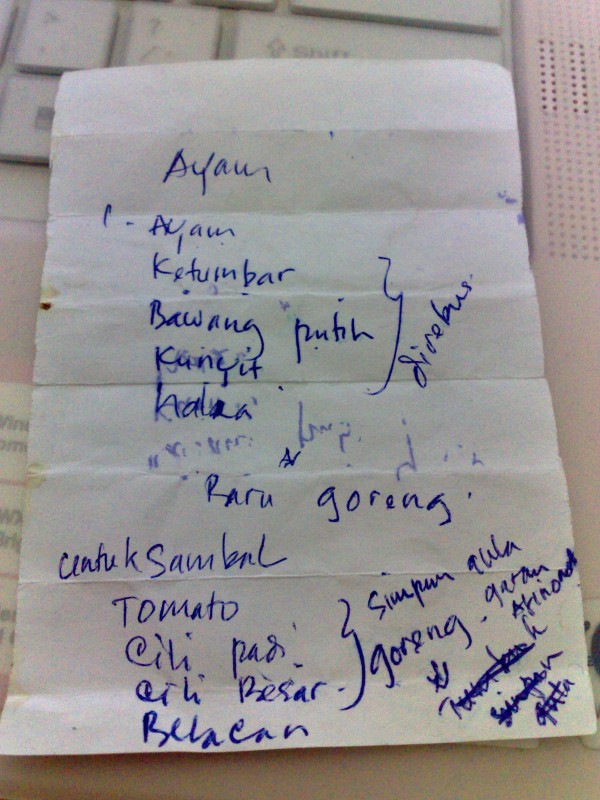 Ayam
1 - Ayam
Ketumbar
Bawang putih
Kunyit
direbus.
Baru goreng.
untuk sambal
Tomato
Cili padi
Cili Besar
Belacan
Simpun gula
goreng - garam
shift